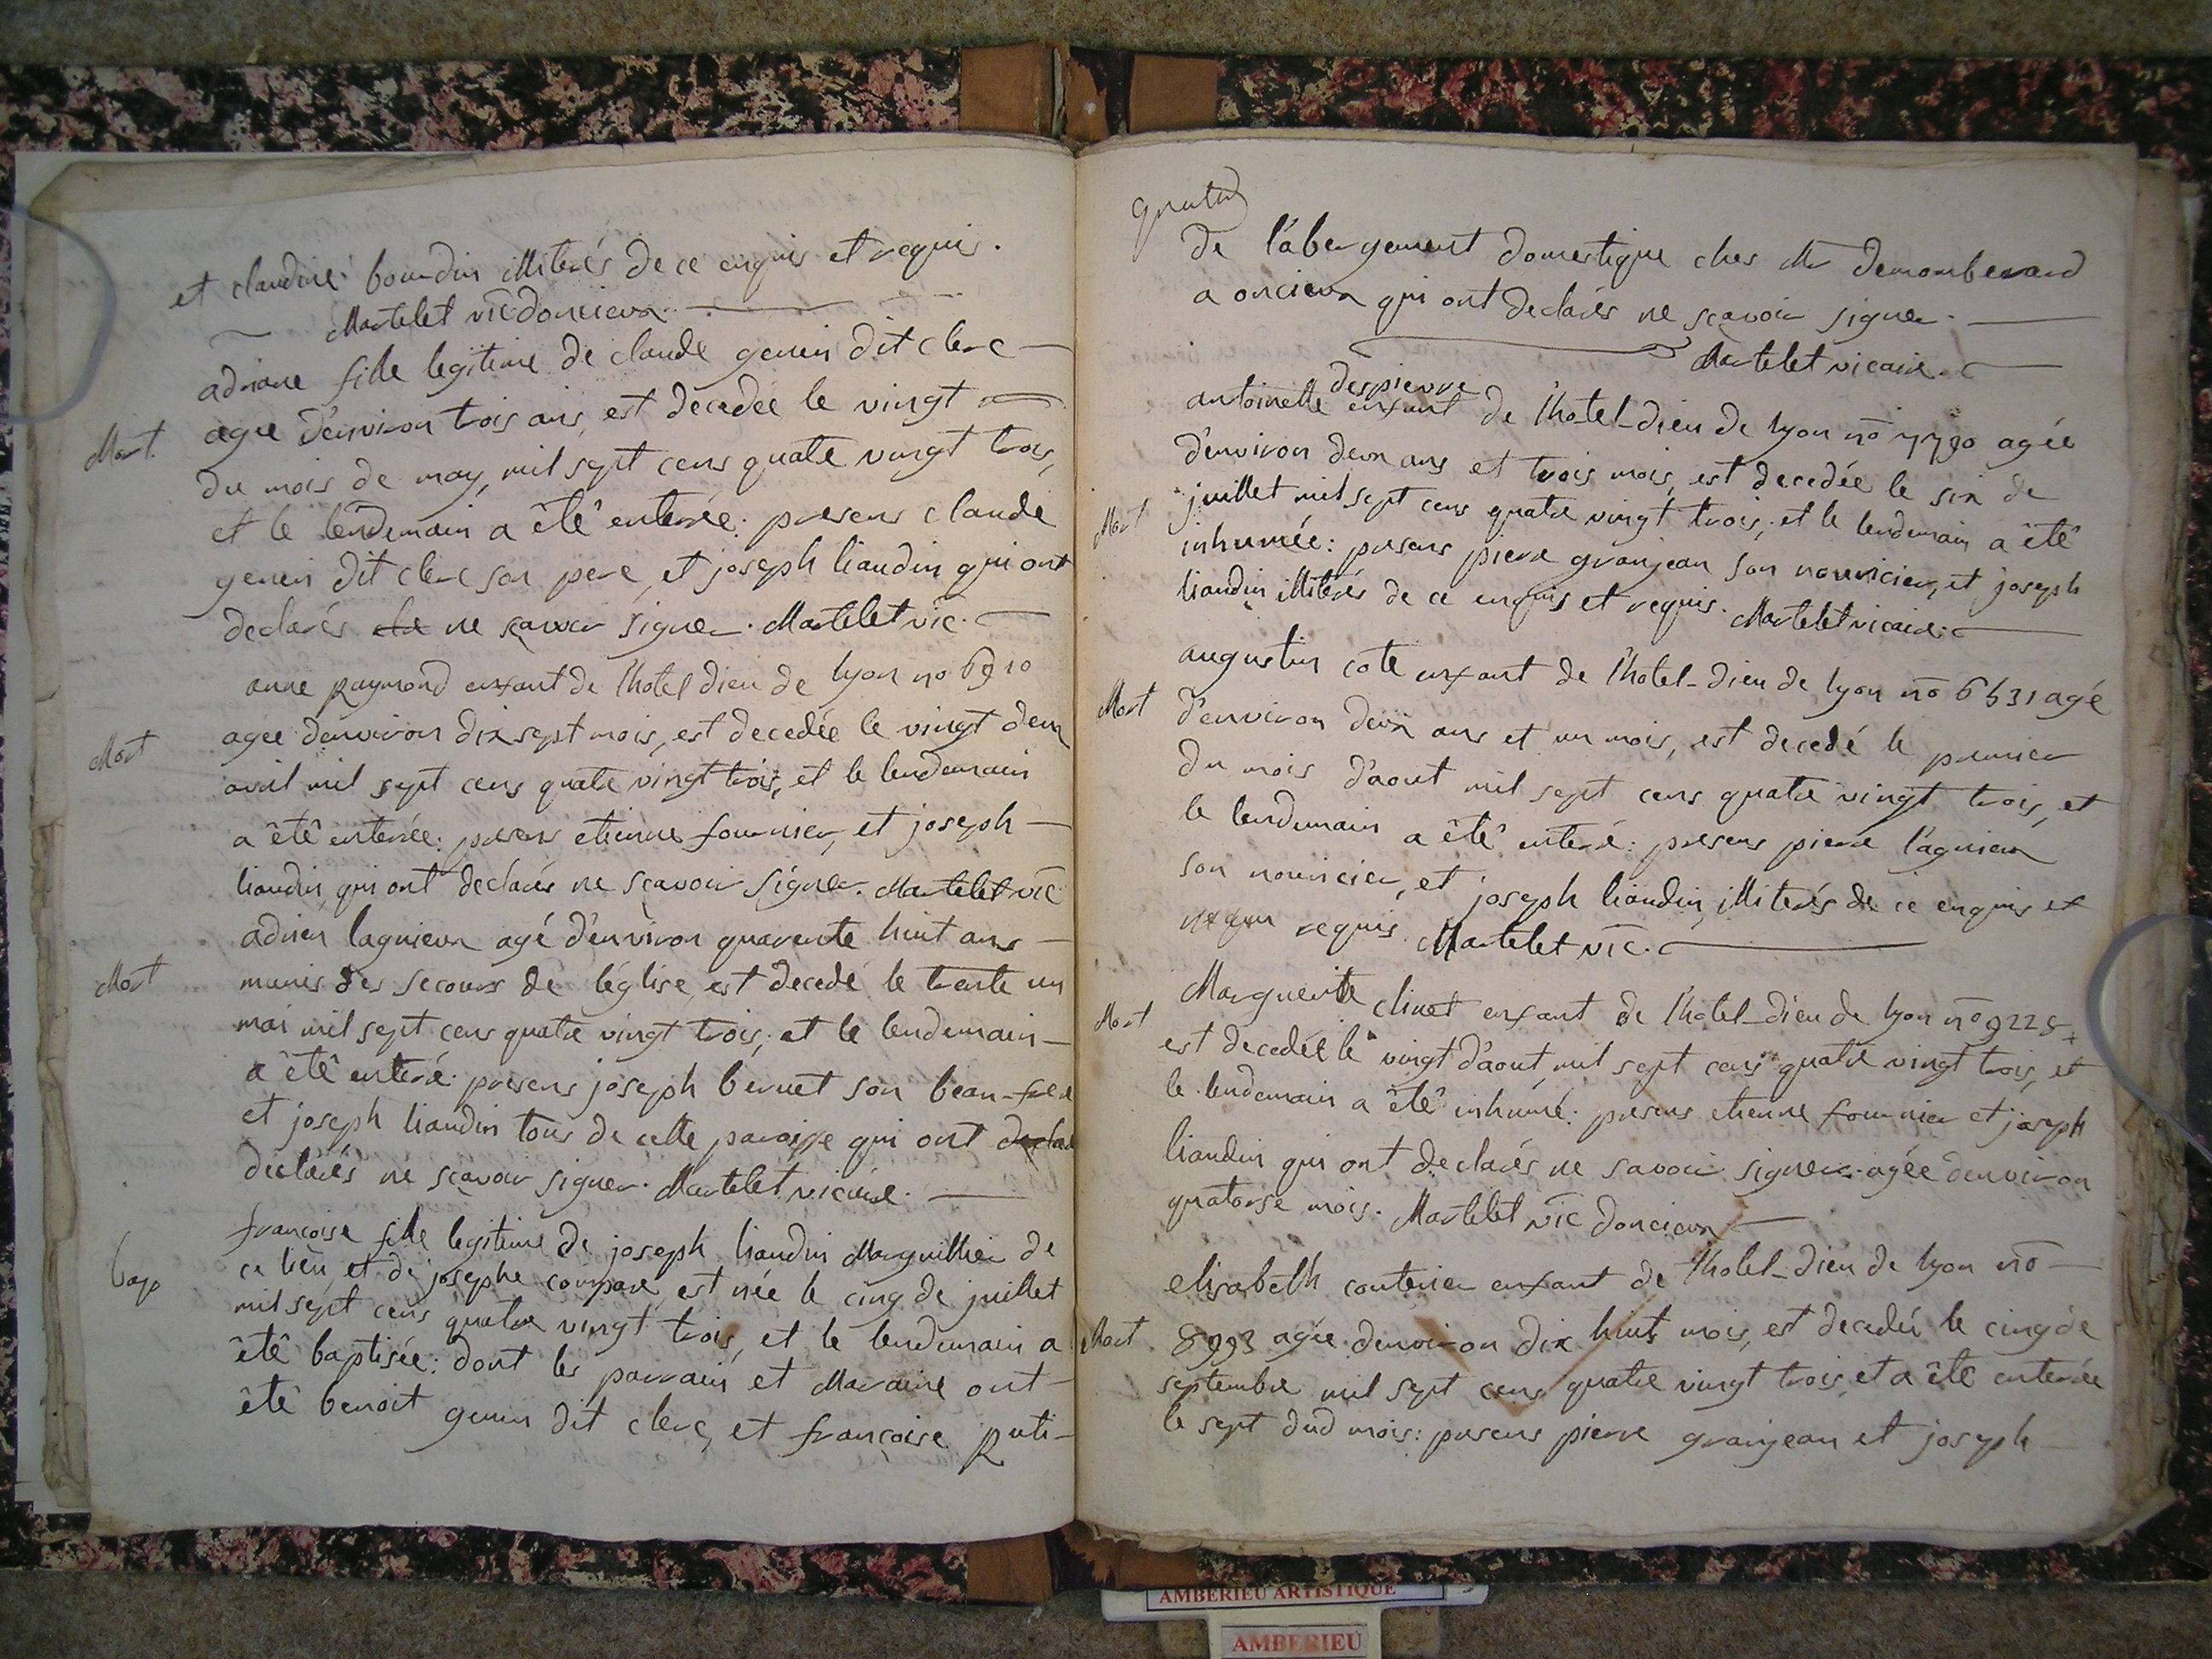 et claudine bourdin illiterés de ce enquis et requis.
Martelet vic doncieux.
adriane fille legitime de claude genin dit clerc
Mort. agee denviron trois ans, est decedée le vingt
du mois de may, mil sept cens quatre vingt trois,
et le lendemain a êtê enterrée: presens claude
genin dit clerc son pere, et joseph liaudin qui ont
declarés ne sçavoir signer. Martelet vic.
anne Raymond enfant de l'hotel dieu de lyon no 6910
Mort agee denviron dix sept mois, est decedée le vingt deux
avril mil sept cens quatre vingt trois, et le lendemain
a êtê enterée: presens etienne fournier, et joseph
liaudin, qui ont declarés ne sçavoir signer. Martelet vic
adrien lagnieux agé d'environ quarente huit ans
Mort munis des secours de l'église, est decedé le trente un
mai mil sept cens quatre vingt trois, et le lendemain
a êtê enteré: presens joseph bernet son beau-frere
et joseph liaudin tous de cette paroisse qui ont declar
declarés ne sçavoir signer. Martelet vicaire.
francoise fille legitime de joseph liaudin Marguillier de
bap ce lieu, et de josephe compare, est née le cinq de juillet
mil sept cens quatre vingt trois, et le lendemain a
êtê baptisée: dont les parrain et Maraine ont
êtê benoit genin dit clerc, et francoise
de l'abergement domestique ches Mr demonbevard
a oncieux qui ont declarés ne sçavoir signer.
Martelet vicaire.
despierre
antoinette enfant de l'hotel-dieu de lyon no 7790 agée
d'environ deux ans et trois mois, est decedée le six de
Mort juillet mil sept cens quatre vingt trois, et le lendemain a êtê
inhumée: presens piere granjean son nourricier, et joseph
liaudin illiterés de ce enquis et requis. Martelet vicaire.
augustin cote enfant de l'hotel-dieu de lyon no 6531 agé
Mort d'environ deux ans et un mois, est decedé le premier
du mois d'aout mil sept cens quatre vingt trois, et
le lendemain a êtê enteré: presens piere lagnieux
son nouricier, et joseph liaudin, illiterés de ce enquis et
requis. Martelet vic.
Marguerite clinet enfant de l'hotel-dieu de lyon no 9225
Mort est decedée le vingt d'aout, mil sept cens quatre vingt trois, et
le lendemain a êtê inhumé: presens etienne fournier et joseph
liaudin qui ont declarés ne savoir signer. agée denviron
quatorse mois. Martelet vic doncieux
elisabeth couterier enfant de l'hotel-dieu de lyon no
Mort 8993 agée denviron dix huit mois, est decedée le cinq de
septembre mil sept cens quatre vingt trois, et a êtê enterée
le sept dud mois: presens pierre granjean et joseph
AMBERIEU ARTISTIQUE
AMBERIEU